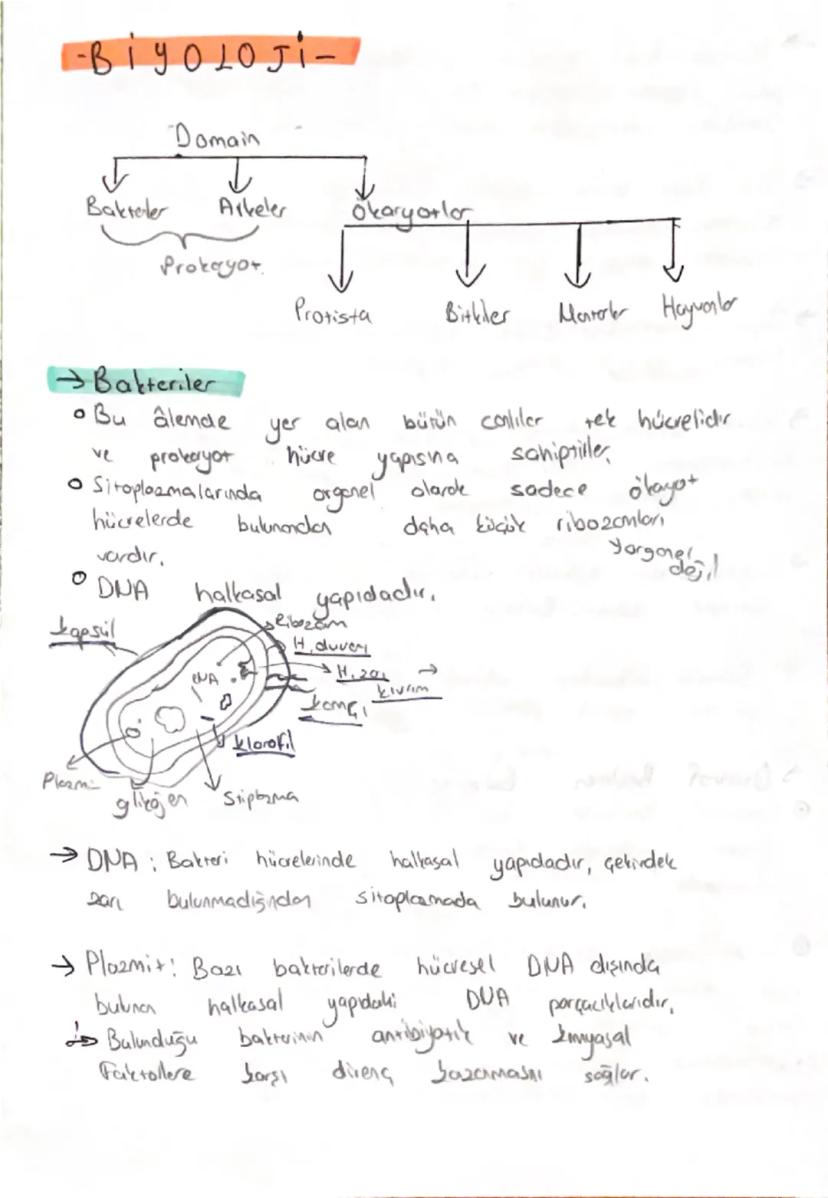 -BİYOLOJİ-
Domain
Bakteriler Arkeler Ökaryotlar
Prokaryot
Protista Bitkiler Mantarlar Hayvanlar
→ Bakteriler
Bu âlemde yer alan bütün canlılar tek hücrelidir
ve prokaryot hücre yapısına sahiptirler.
Sitoplazmalarında organel olarak sadece ökayot
hücrelerde bulunandan daha küçük ribozomları
vardır.
organel değil
DNA halkasal yapıdadır.
kapsül
Ribozom
H. duvarı
H. zarı →
kıvrım
DNA
kamçı
klorofil
Plazmi
glikojen
Stiplazma
→ DNA : Bakteri hücrelerinde halkasal yapıdadır, çekirdek
zarı bulunmadığından sitoplazmada bulunur.
→ Plazmit : Bazı bakterilerde hücresel DNA dışında
bulunan halkasal yapıdaki DNA parçacıklarıdır.
Bulunduğu bakterinin antibiyotik ve kimyasal
faktöllere karşı direnç kazanmasını sağlar.